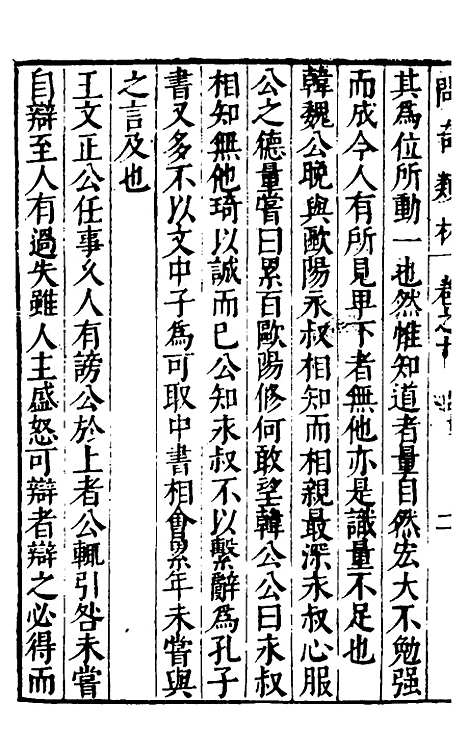 問奇類林 卷之十 二
其為位所動一也然惟知道者量自然宏大不勉强
而成今人有所見卑下者無他亦是識量不足也
韓魏公晚與歐陽永叔相知而相親最深永叔心服
公之德量嘗曰累百歐陽修何敢望韓公公曰永叔
相知無他琦以誠而已公知永叔不以繫辭為孔子
書又多不以文中子為可取中書相會累年未嘗與
之言及也
王文正公任事久人有謗公於上者公輒引咎未嘗
自辯至人有過失雖人主盛怒可辯者辯之必得而